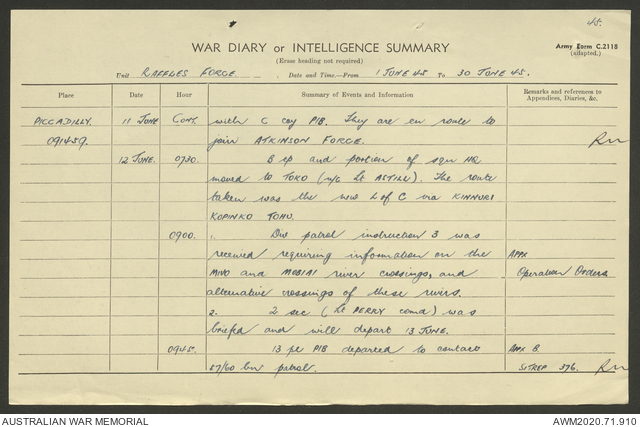 45.
WAR DIARY or INTELLIGENCE SUMMARY
Army Form C.2118
(adapted.)
(Erase heading not required)
Unit RAFFLES FORCE Date and Time—From 1 JUNE 45 To 30 JUNE 45.
Place Date Hour Summary of Events and Information Remarks and references to
Appendices, Diaries, &c.
PICCADILLY. 11 JUNE CONT. with C coy PIB. They are en route to
091459. join ATKINSON FORCE.
12 JUNE. 0730. B ep and portion of sqn HQ
moved to TOKO (o/c Lt ASTILL). The route
taken was the new L of C via KINNURI
KOPINKO TOHU.
0900. 1. Div patrol instruction 3 was
received requiring information on the APPX
MIVO and MOBIAI river crossings, and Operation Orders
alternative crossings of these rivers.
2. 2 sec (Lt PERRY comd) was
briefed and will depart 13 JUNE.
0945. 13 pl PIB departed to contact APPX B.
57/60 bn patrol. SITREP 376.
AUSTRALIAN WAR MEMORIAL AWM2020.71.910